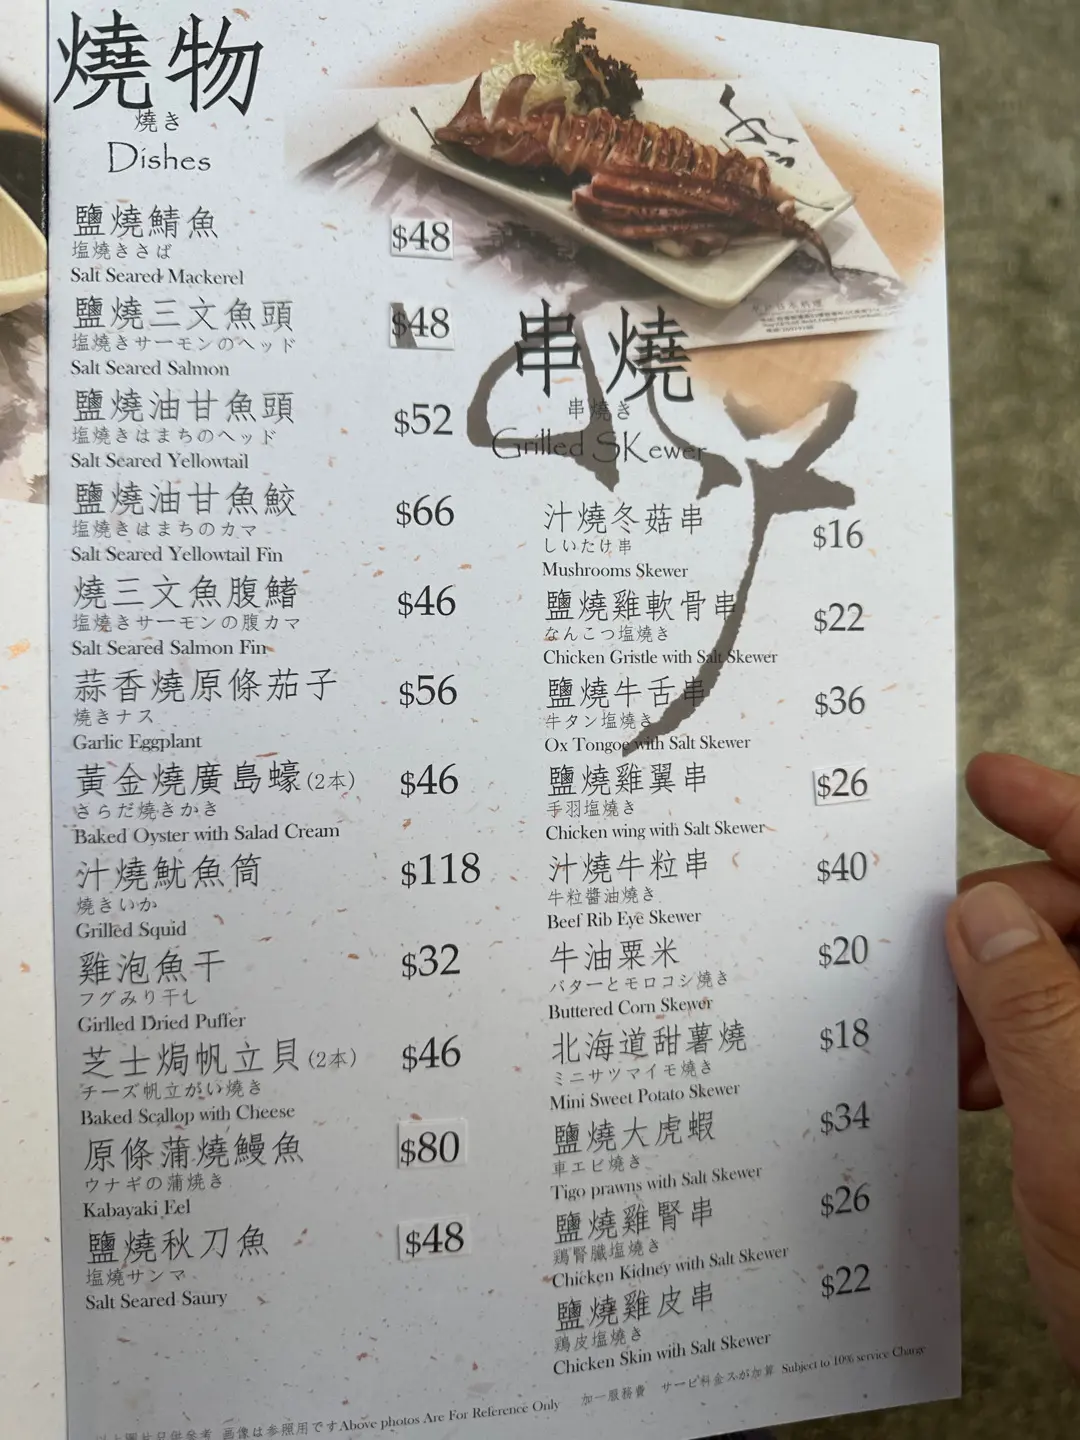 燒物
燒き
Dishes
鹽燒鯖魚
塩燒きさば
Salt Seared Mackerel
$48
鹽燒三文魚頭
塩燒きサーモンのヘッド
Salt Seared Salmon
$48
鹽燒油甘魚頭
塩燒きはまちのヘッド
Salt Seared Yellowtail
$52
鹽燒油甘魚鮫
塩燒きはまちのカマ
Salt Seared Yellowtail Fin
$66
燒三文魚腹鰭
塩燒きサーモンの腹カマ
Salt Seared Salmon Fin
$46
蒜香燒原條茄子
燒きナス
Garlic Eggplant
$56
黃金燒廣島蠔(2本)
さらだ燒きかき
Baked Oyster with Salad Cream
$46
汁燒魷魚筒
燒きいか
Grilled Squid
$118
雞泡魚干
フグみり干し
Girlled Dried Puffer
$32
芝士焗帆立貝(2本)
チーズ帆立がい燒き
Baked Scallop with Cheese
$46
原條蒲燒鰻魚
ウナギの蒲燒き
Kabayaki Eel
$80
鹽燒秋刀魚
塩燒サンマ
Salt Seared Saury
$48
串燒
串燒き
Grilled SKewer
汁燒冬菇串
しいたけ串
Mushrooms Skewer
$16
鹽燒雞軟骨串
なんこつ塩燒き
Chicken Gristle with Salt Skewer
$22
鹽燒牛舌串
牛タン塩燒き
Ox Tongoe with Salt Skewer
$36
鹽燒雞翼串
手羽塩燒き
Chicken wing with Salt Skewer
$26
汁燒牛粒串
牛粒醬油燒き
Beef Rib Eye Skewer
$40
牛油粟米
バターとモロコシ燒き
Buttered Corn Skewer
$20
北海道甜薯燒
ミニサツマイモ燒き
Mini Sweet Potato Skewer
$18
鹽燒大虎蝦
車エビ燒き
Tigo prawns with Salt Skewer
$34
鹽燒雞腎串
鶏腎臓塩燒き
Chicken Kidney with Salt Skewer
$26
鹽燒雞皮串
鶏皮塩燒き
Chicken Skin with Salt Skewer
$22
以上圖片只供參考 画像は参照用ですAbove photos Are For Reference Only
加一服務費 サービ料金スが加算 Subject to 10% service Charge